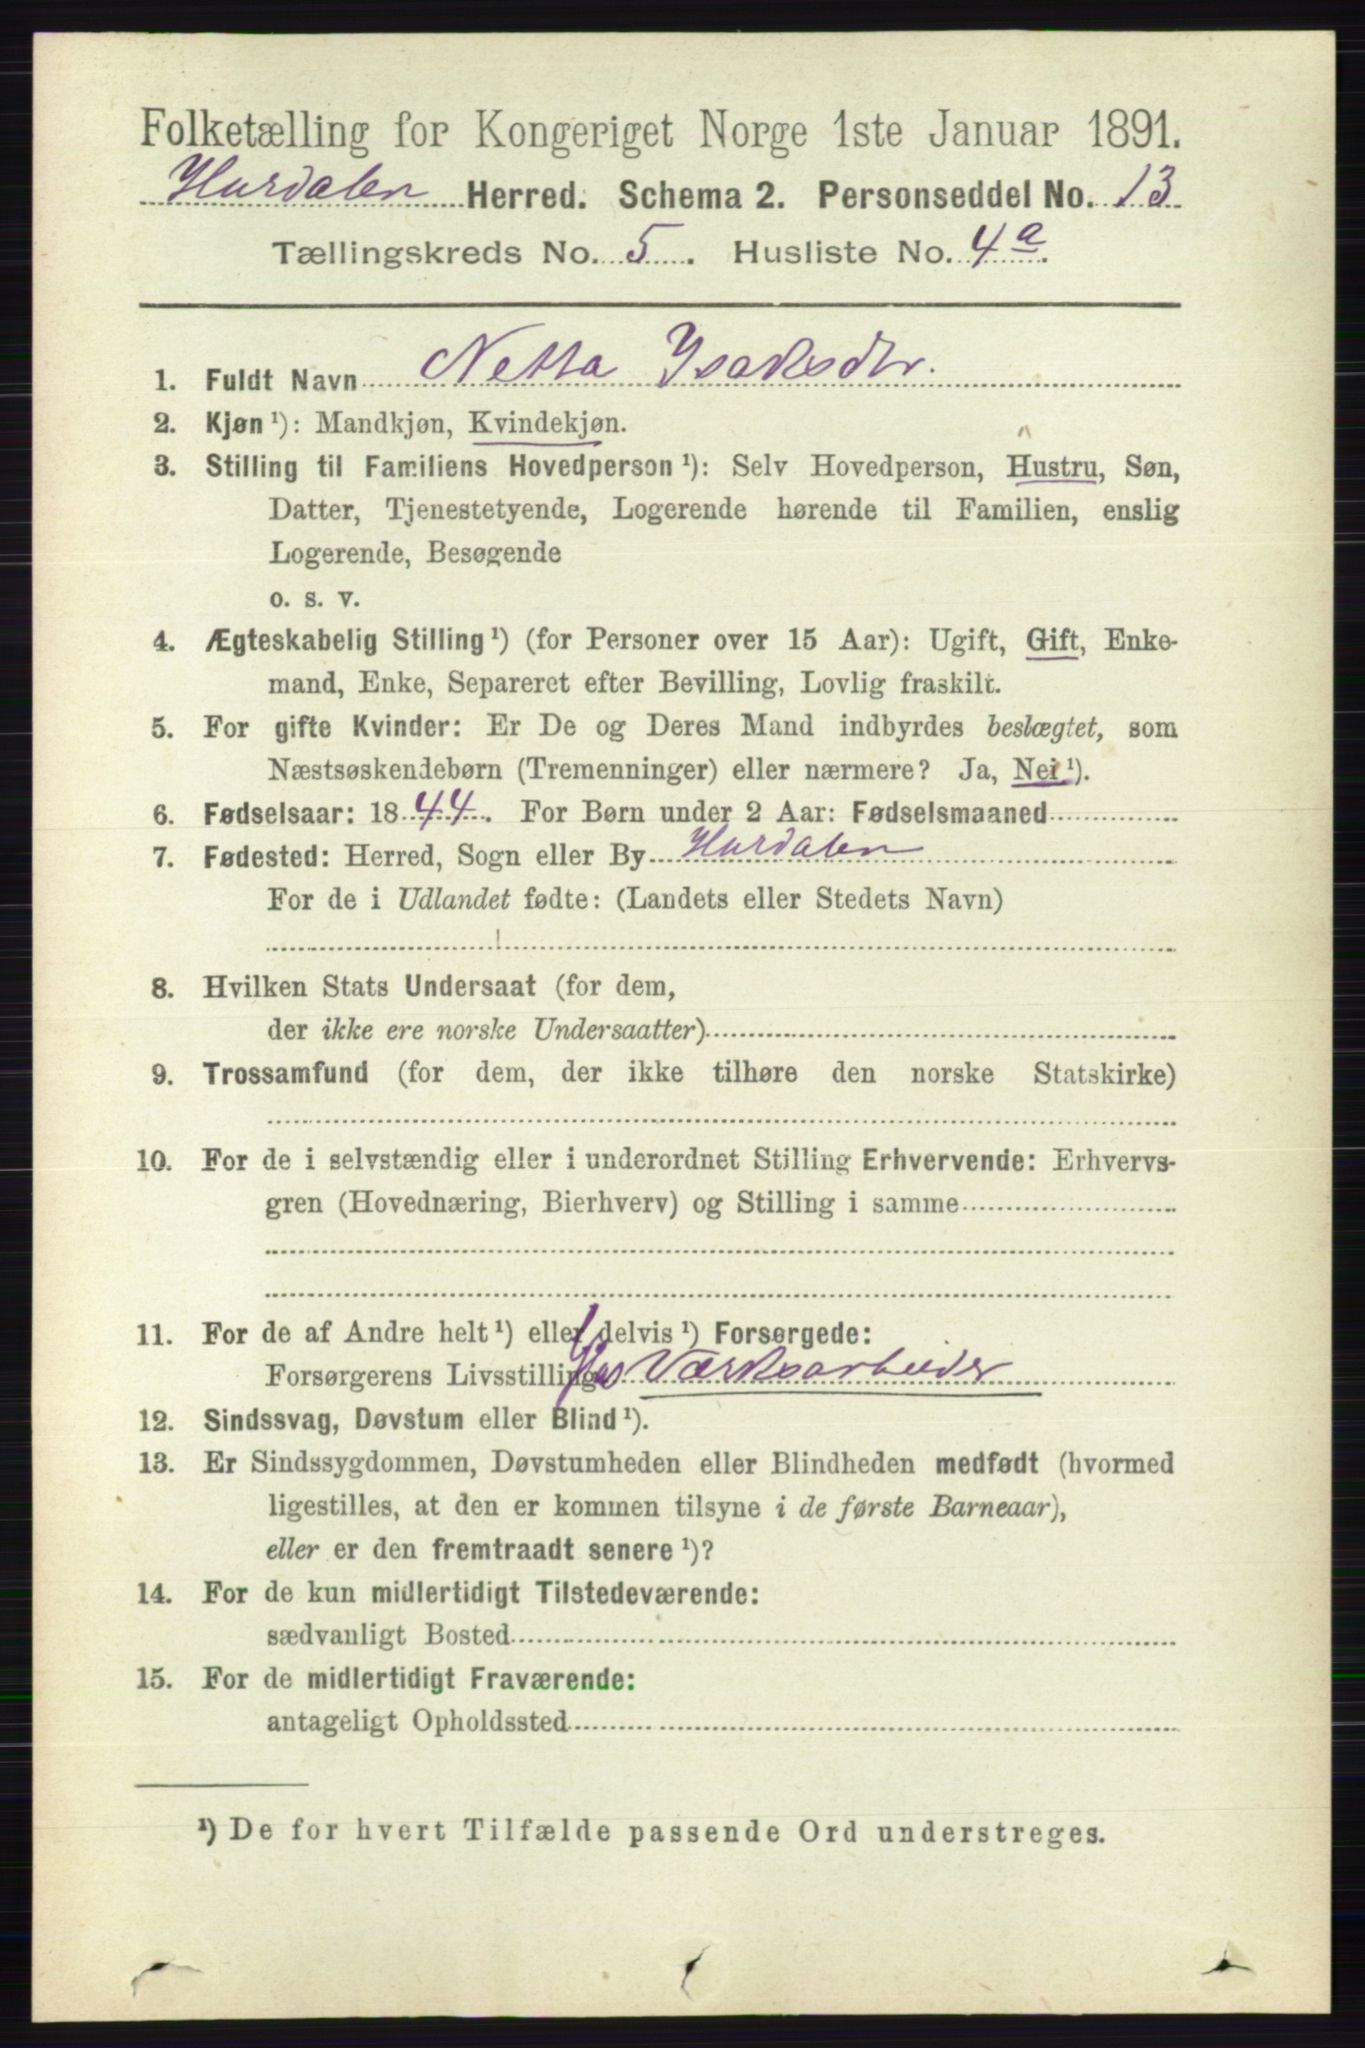 Folketælling for Kongeriget Norge 1ste Januar 1891.
Hurdalen Herred. Schema 2. Personseddel No. 13
Tællingskreds No. 5. Husliste No. 4a.
1. Fuldt Navn Netta Ysaksdtr.
2. Kjøn ¹): Mandkjøn, Kvindekjøn.
3. Stilling til Familiens Hovedperson ¹): Selv Hovedperson, Hustru, Søn,
Datter, Tjenestetyende, Logerende hørende til Familien, enslig
Logerende, Besøgende
o. s. v.
4. Ægteskabelig Stilling ¹) (for Personer over 15 Aar): Ugift, Gift, Enke-
mand, Enke, Separeret efter Bevilling, Lovlig fraskilt.
5. For gifte Kvinder: Er De og Deres Mand indbyrdes beslægtet, som
Næstsøskendebørn (Tremenninger) eller nærmere? Ja, Nei ¹).
6. Fødselsaar: 1844. For Børn under 2 Aar: Fødselsmaaned
7. Fødested: Herred, Sogn eller By Hurdalen
For de i Udlandet fødte: (Landets eller Stedets Navn)
8. Hvilken Stats Undersaat (for dem,
der ikke ere norske Undersaatter)
9. Trossamfund (for dem, der ikke tilhøre den norske Statskirke)
10. For de i selvstændig eller i underordnet Stilling Erhvervende: Erhvervs-
gren (Hovednæring, Bierhverv) og Stilling i samme
11. For de af Andre helt ¹) eller delvis ¹) Forsørgede:
Forsørgerens Livsstilling Værksarbeider
12. Sindssvag, Døvstum eller Blind ¹).
13. Er Sindssygdommen, Døvstumheden eller Blindheden medfødt (hvormed
ligestilles, at den er kommen tilsyne i de første Barneaar),
eller er den fremtraadt senere ¹)?
14. For de kun midlertidigt Tilstedeværende:
sædvanligt Bosted
15. For de midlertidigt Fraværende:
antageligt Opholdssted
¹) De for hvert Tilfælde passende Ord understreges.